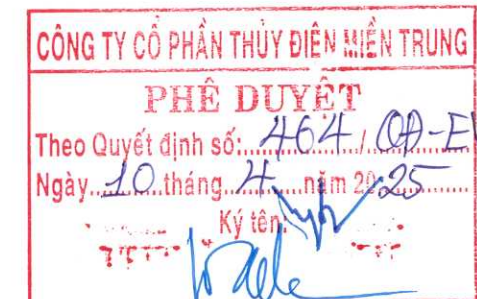 CÔNG TY CỔ PHẦN THỦY ĐIỆN MIỀN TRUNG
PHÊ DUYỆT
Theo Quyết định số: 464 / QĐ-E
Ngày 10 tháng 4 năm 2025
Ký tên: